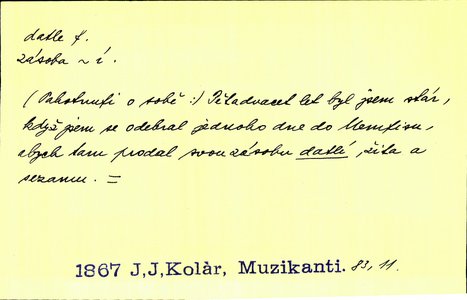 datle f.
zásoba ~ í.
(Pahotnufi o sobě :) Pětadvacet let byl jsem stár,
když jsem se odebral jednoho dne do Memfisu,
abych tam prodal svou zásobu datlí, žita a
sezamu. =
1867 J,J,Kolàr, Muzikanti. 83, 11.